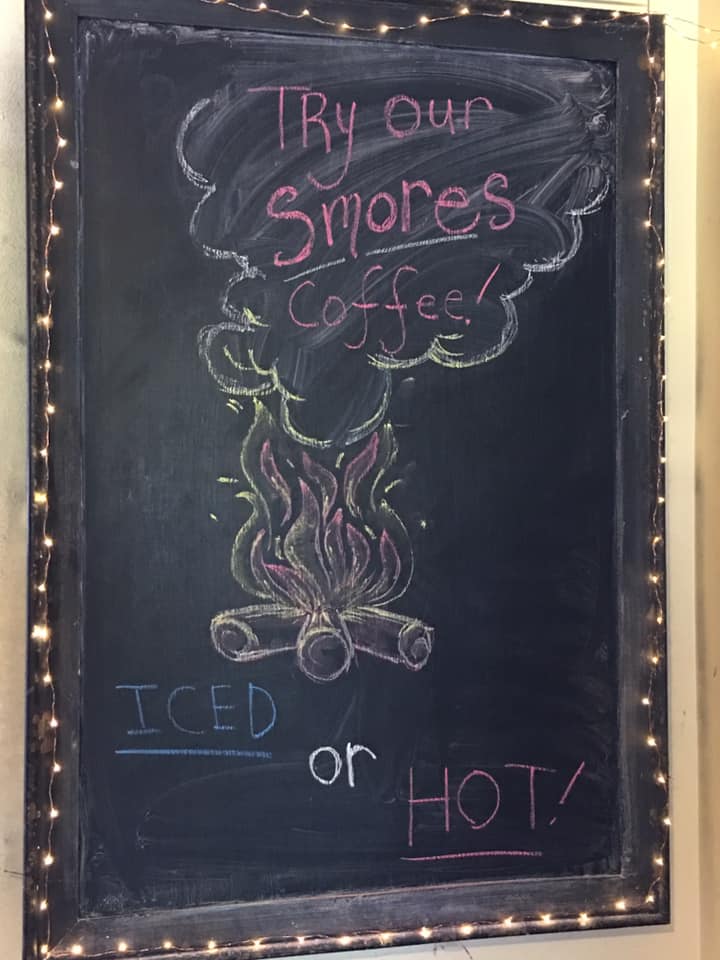 TRy our
Smores
Coffee!
ICED
or
HOT!